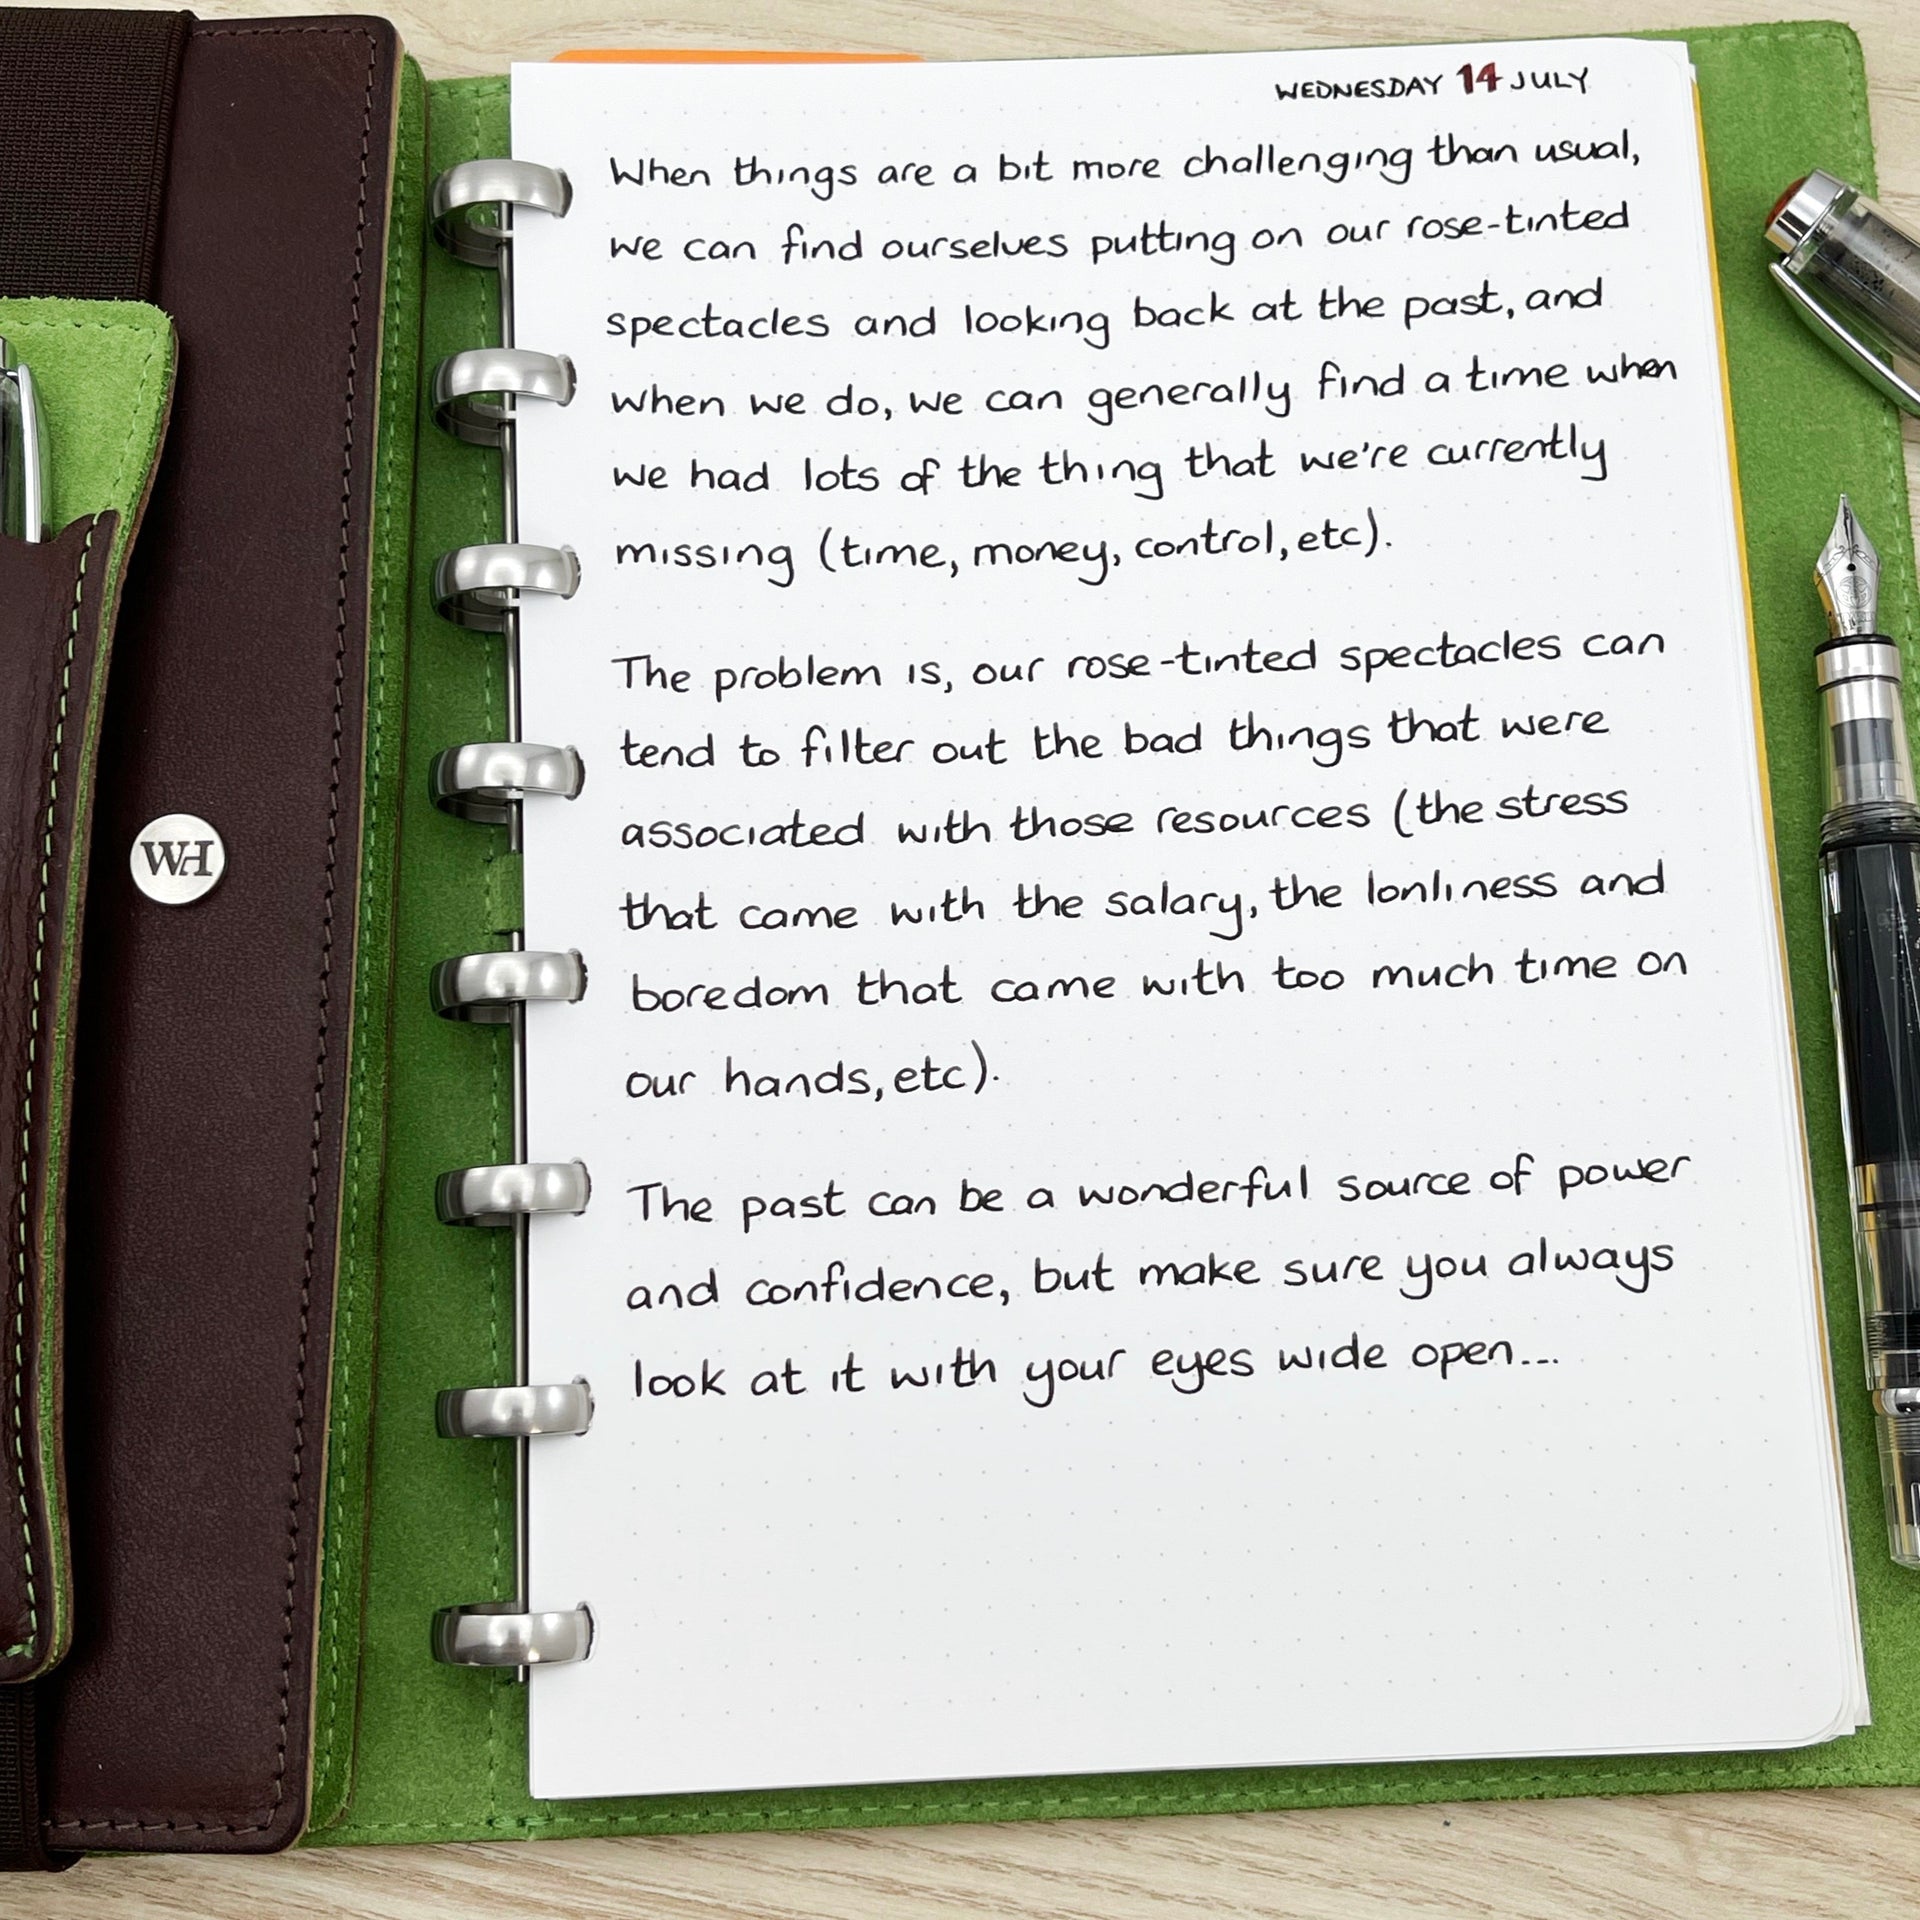 WEDNESDAY 14 JULY
When things are a bit more challenging than usual,
we can find ourselves putting on our rose-tinted
spectacles and looking back at the past, and
when we do, we can generally find a time when
we had lots of the thing that we're currently
missing (time, money, control, etc).
The problem is, our rose-tinted spectacles can
tend to filter out the bad things that were
associated with those resources (the stress
that came with the salary, the lonliness and
boredom that came with too much time on
our hands, etc).
The past can be a wonderful source of power
and confidence, but make sure you always
look at it with your eyes wide open...
WH